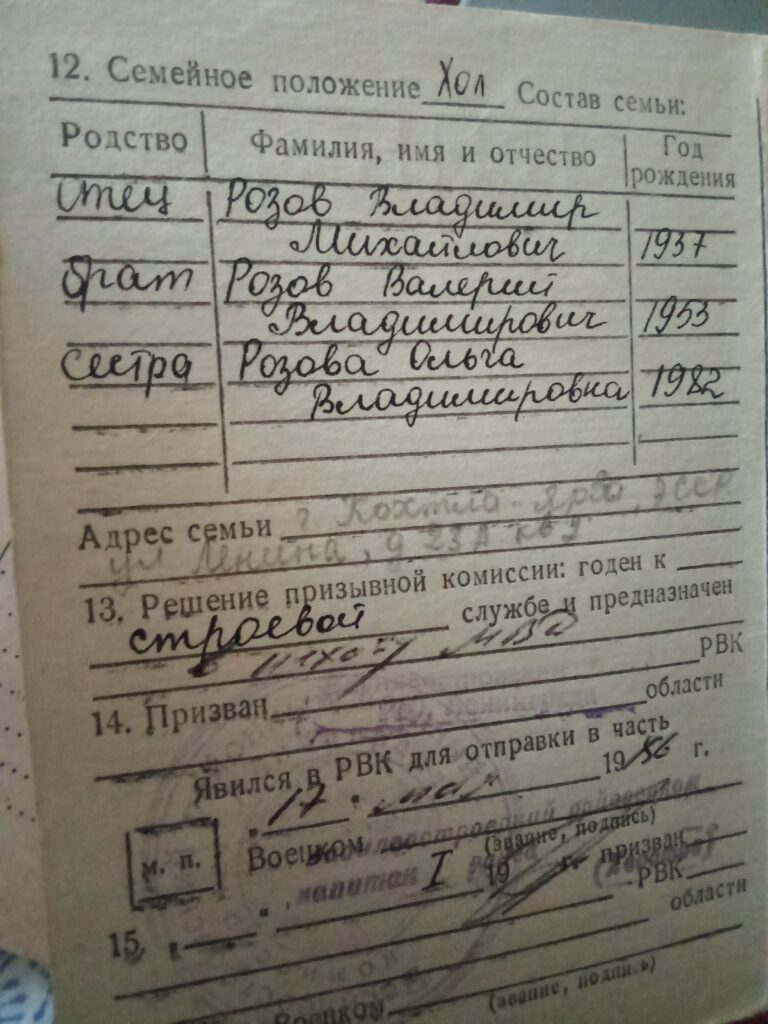 12. Семейное положение Хол Состав семьи:
Родство Фамилия, имя и отчество Год рождения
отец Розов Владимир
Михайлович 1937
брат Розов Валерий
Владимирович 1953
сестра Розова Ольга
Владимировна 1982
Адрес семьи г Кохтла-Ярве, ЭССР
ул Ленина, д 23А кв 9
13. Решение призывной комиссии: годен к
строевой службе и предназначен
в школу МВД
14. Призван РВК
Ленинграда области
Явился в РВК для отправки в часть
"17" мая 1956 г.
м. п. Военком
(звание, подпись)
капитан
15. " " I 19 г. призван
РВК
области
Военком
(звание, подпись)